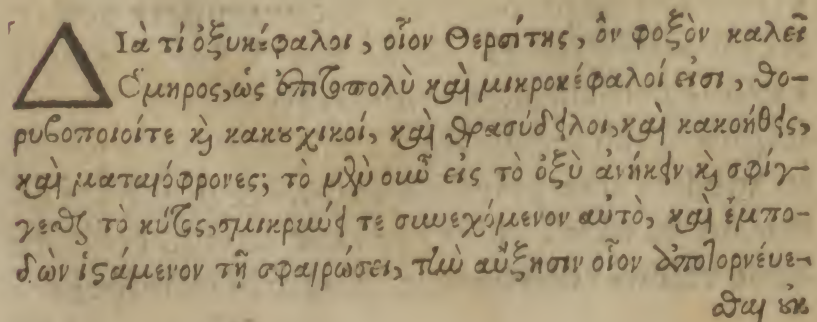 Διὰ τί ὀξυκέφαλοι, οἷον Θερσίτης, ὃν φοξὸν καλεῖ
Ὅμηρος, ὡς ἐπιτοπολὺ καὶ μικροκέφαλοί εἰσι, θο-
ρυβοποιοίτε καὶ κακουχικοί, καὶ θρασύδειλοι, καὶ κακοήθεις,
καὶ ματαιόφρονες; τὸ μὲν οὖν εἰς τὸ ὀξὺ ἀνήκειν καὶ σφίγ-
γεσθαι τὸ κύτος, σμικρύνει τε συνεχόμενον αὐτὸ, καὶ ἐμπο-
δὼν ἱστάμενον τῇ σφαιρώσει, τὴν αὔξησιν οἷον ἀποτορνεύε-
σθαι οὐκ